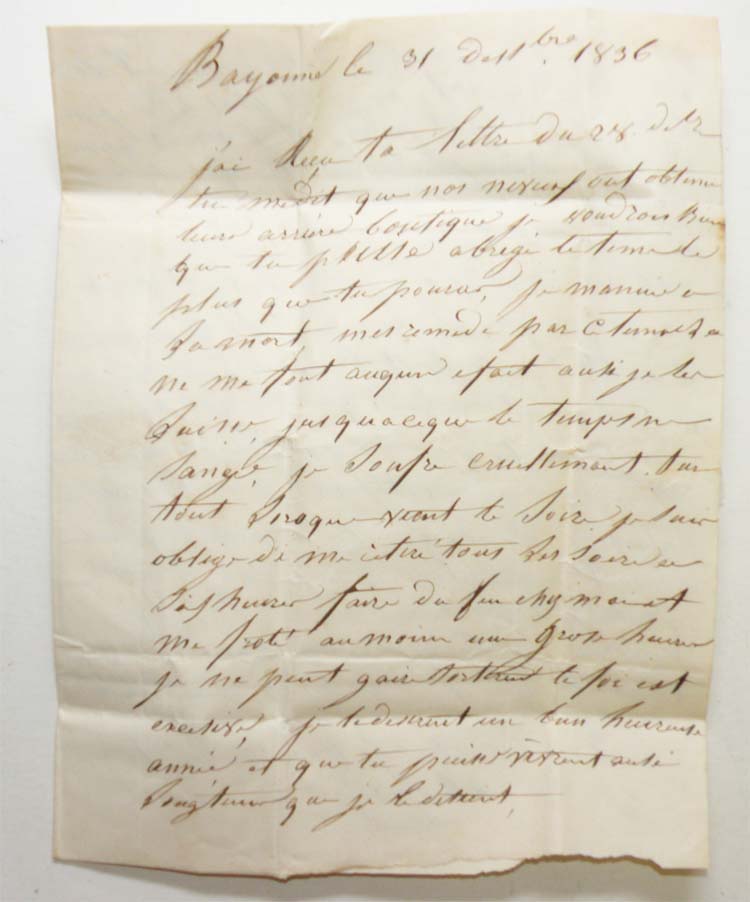 Bayonne le 31 de 1836
j'ai Reçu ta lettre du 28
tu me dit que nos neveux ont obtenu
leurs arriére boutique je voudrois Bien
que tu puisse abregé le tems le
plus que tu pouras, je manuie a
La mort, mes remede par ce tems La
ne me font auqun efait ausi je les
Laisse jusqu'aceque le temps ne
sange, je soufre cruellement. sur
tout Lorsque vient le soire, je suis
oblige de me retiré tous Les soire a
heures faire du feu chez moi et
me froté au moins une grose heure
je ne peut gaire le foi est
excesive, je te desirent un bon heureuse
année et que tu puise vivrent ausi
Longtems que je le desirent,